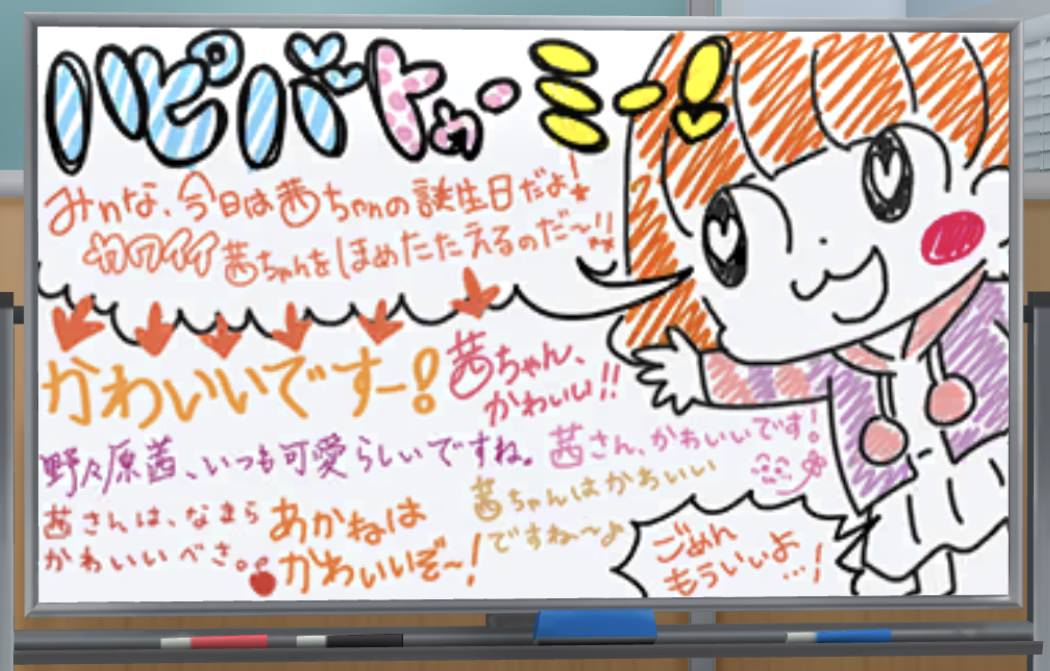 ハピバトゥ・ミー!
みんな、今日は茜ちゃんの誕生日だよ!
カワイイ茜ちゃんをほめたたえるのだ〜!!
かわいいですー!
茜ちゃん、
かわいい!!
野々原茜、いつも可愛らしいですね。
茜さん、かわいいです!
茜さんは、なまら
かわいいべさ。
あかねは
かわいいぞ〜!
茜ちゃんはかわいい
ですね〜♪
ごめん
もういいよ
…!